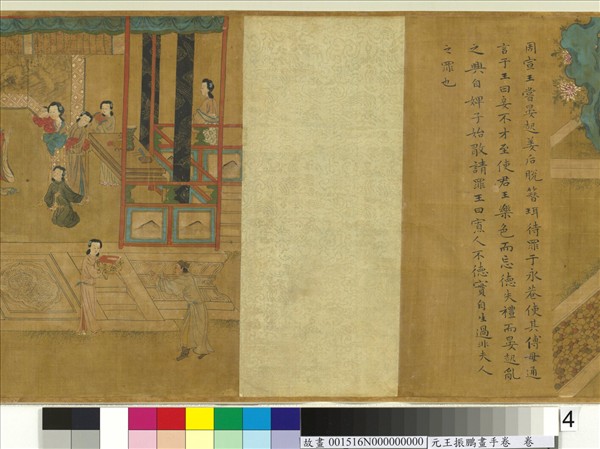 周宣王嘗晏起姜后脫簪珥待罪于永巷使其傅母通
言于王曰妾不才至使君王樂色而忘德失禮而晏起亂
之興自婢子始敢請罪王曰寡人不德實自生過非夫人
之罪也
4
故畫 001516N000000000 元王振鵬畫手卷 卷